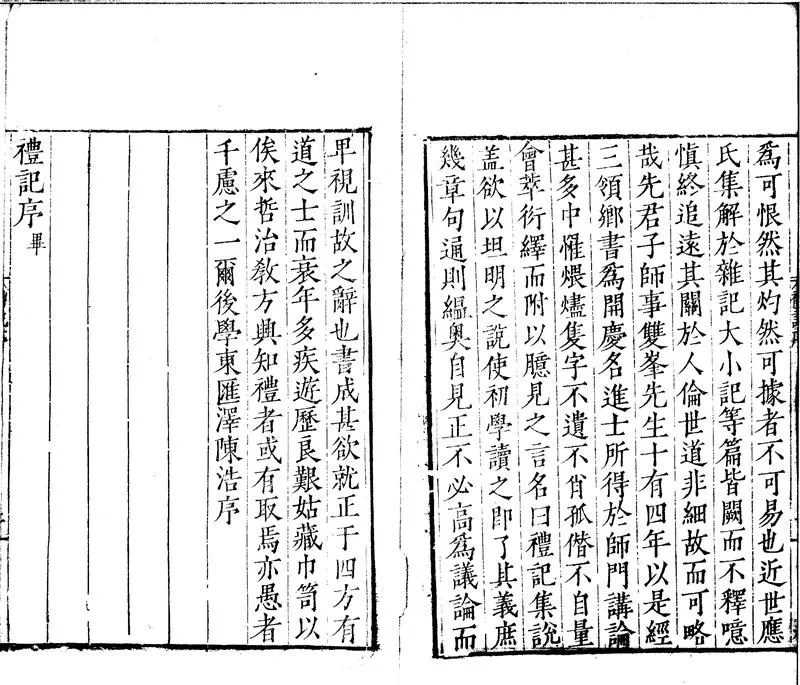 為可恨然其灼然可據者不可易也近世應
氏集解於雜記大小記等篇皆闕而不釋噫
慎終追遠其關於人倫世道非細故而可略
哉先君子師事雙峯先生十有四年以是經
三領鄉書為開慶名進士所得於師門講論
甚多中罹煨燼隻字不遺不肖孤僭不自量
會萃衍繹而附以臆見之言名曰禮記集說
蓋欲以坦明之說使初學讀之即了其義庶
幾章句通則縕奧自見正不必高為議論而
卑視訓故之辭也書成甚欲就正于四方有
道之士而衰年多疾遊歷良艱姑藏巾笥以
俟來哲治教方興知禮者或有取焉亦愚者
千慮之一爾後學東匯澤陳浩序
禮記序畢